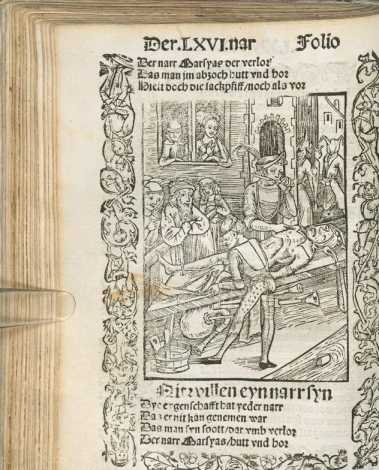 Der.LXVI.nar Folio
Der narr Marsyas der verlor
Das man im abzoch hutt vnd hor
Hielt doch die sackpfiff/noch als vor
Nit wyssen eyn narr syn
Dye eygenschafft hat yeder narr
Das er nit kan genemen war
Das man syn spott/dar vmb verlor
Der narr Marsyas/hutt vnd hor